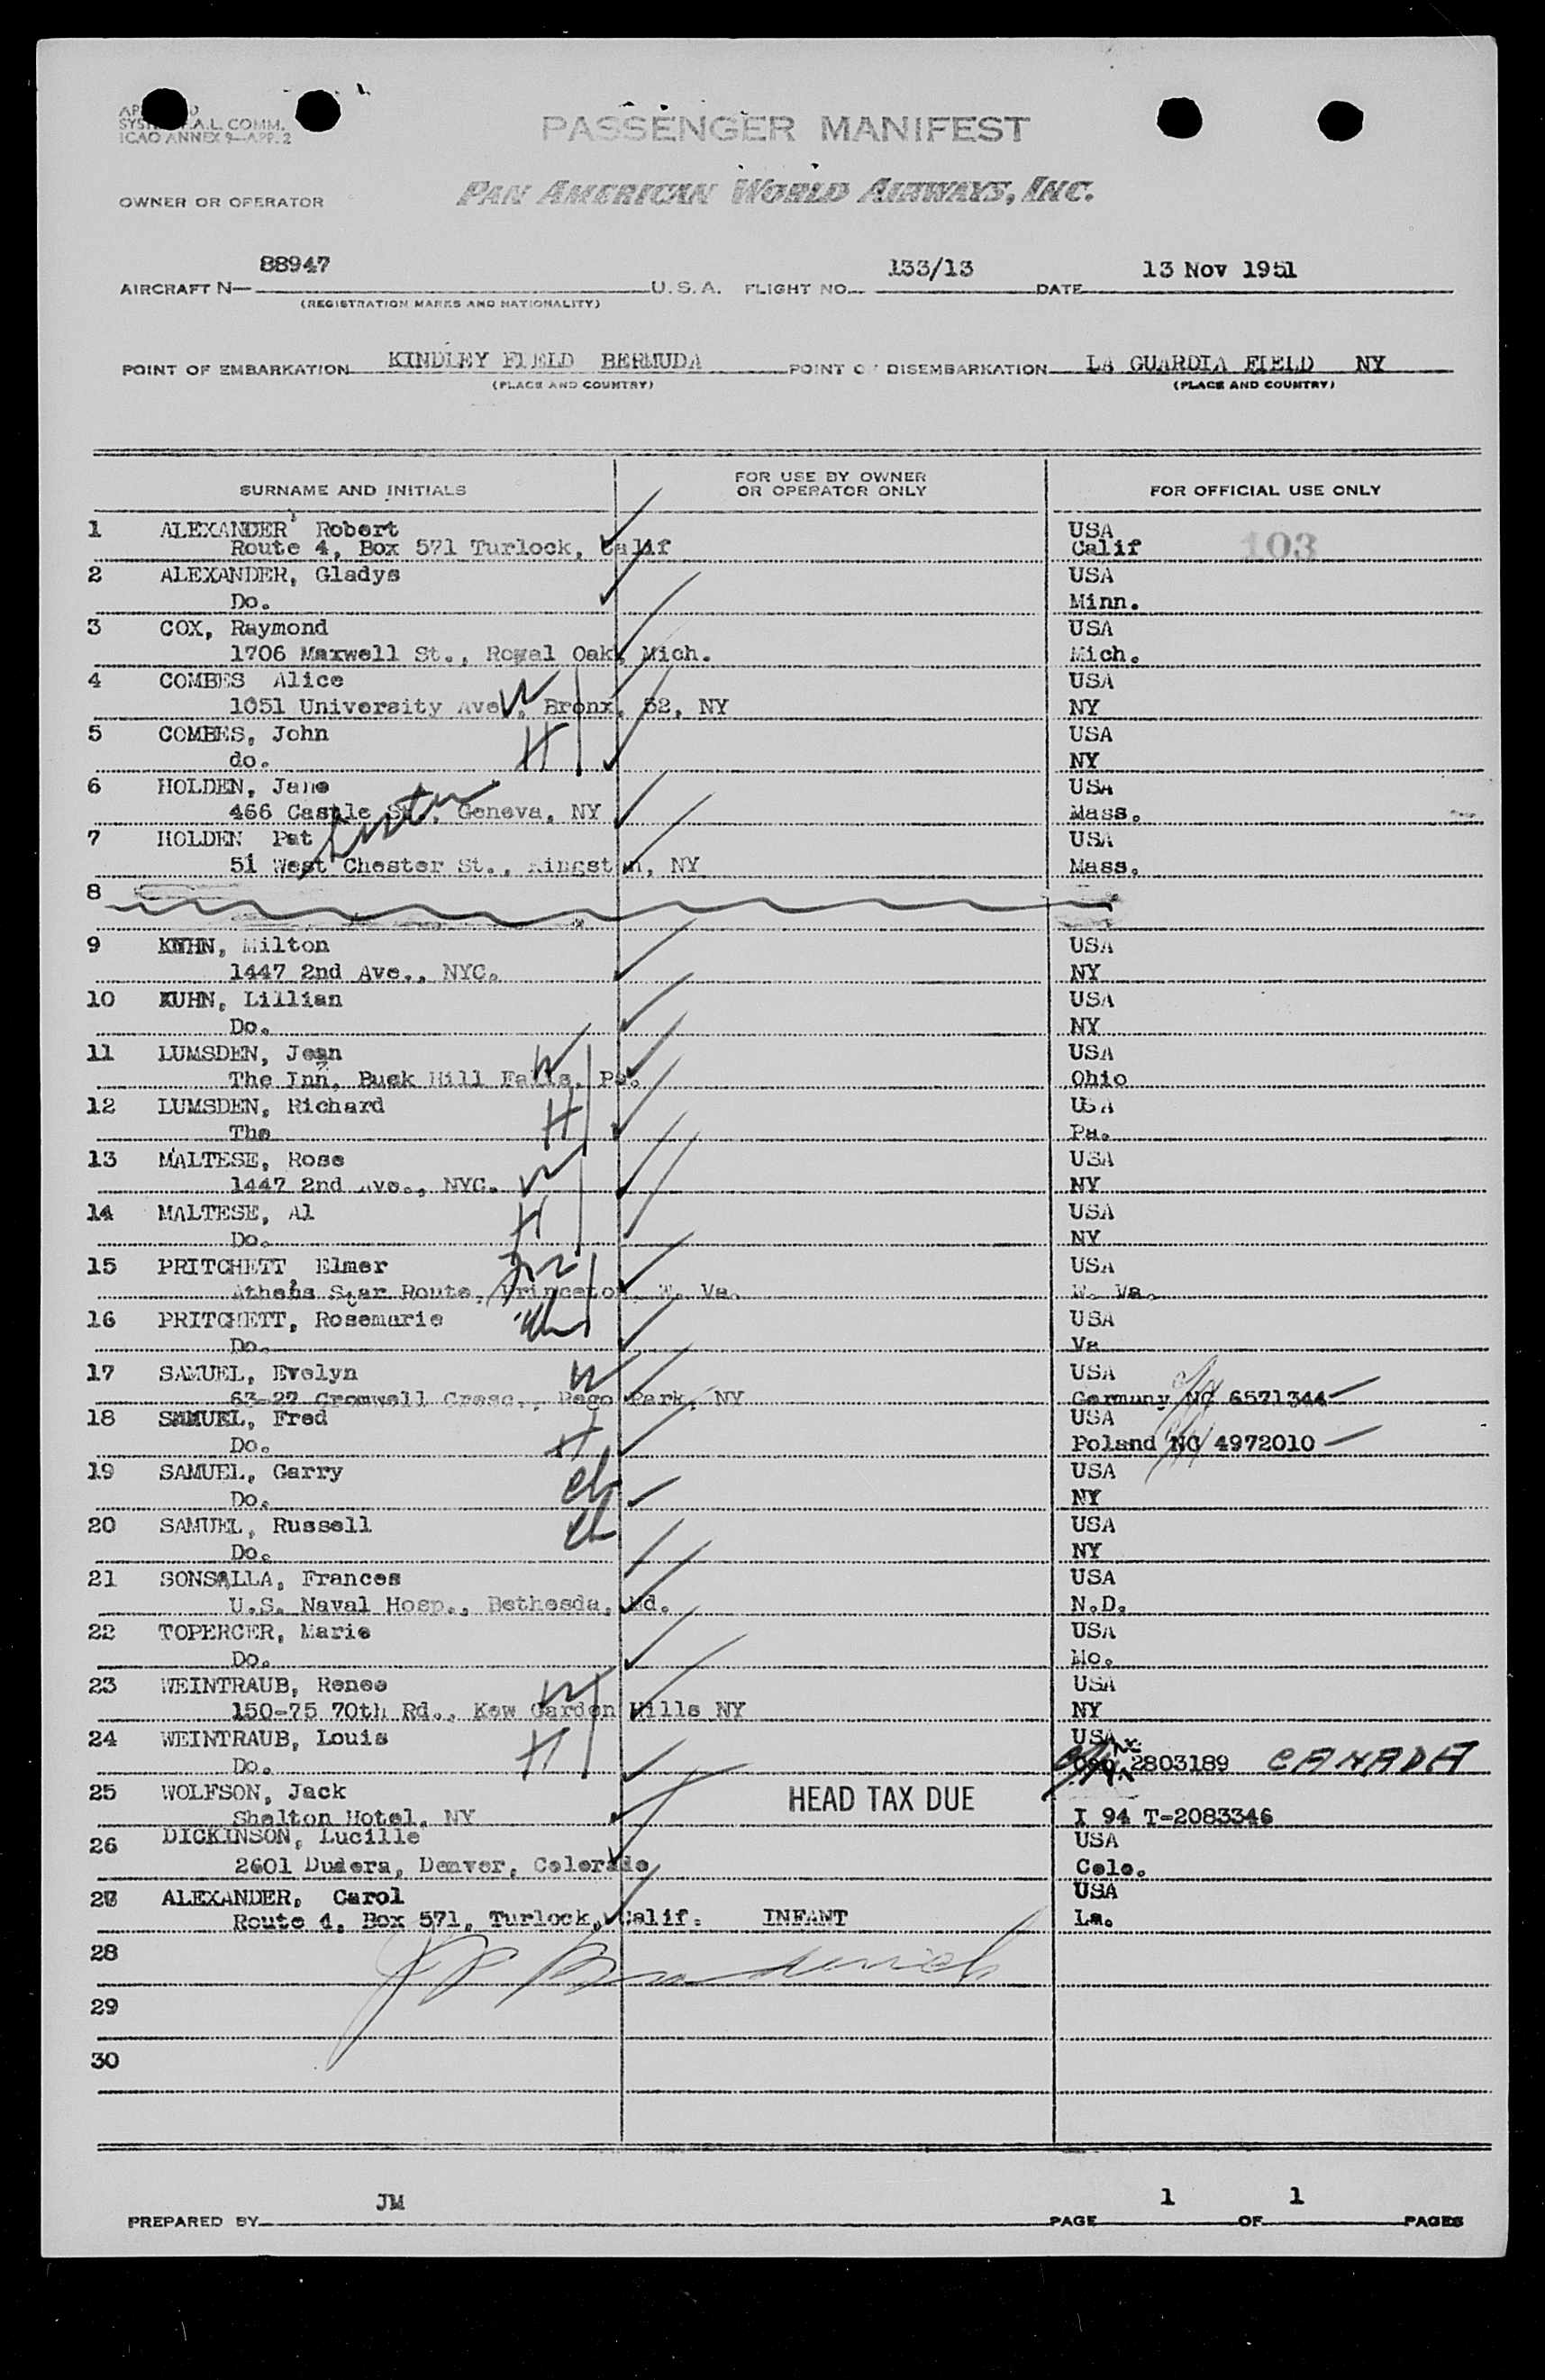 SYST F.A.L. COMM.
ICAO ANNEX 9-APP. 2
PASSENGER MANIFEST
OWNER OR OPERATOR
PAN AMERICAN WORLD AIRWAYS, INC.
AIRCRAFT N— 88947 U.S.A. FLIGHT NO. 133/13 DATE 13 Nov 1951
(REGISTRATION MARKS AND NATIONALITY)
POINT OF EMBARKATION KINDLEY FIELD BERMUDA POINT OF DISEMBARKATION LA GUARDIA FIELD NY
(PLACE AND COUNTRY) (PLACE AND COUNTRY)
SURNAME AND INITIALS FOR USE BY OWNER OR OPERATOR ONLY FOR OFFICIAL USE ONLY
1 ALEXANDER Robert USA
Route 4, Box 571 Turlock, Calif Calif 103
2 ALEXANDER, Gladys USA
Do. Minn.
3 COX, Raymond USA
1706 Maxwell St., Royal Oak, Mich. Mich.
4 COMBES Alice USA
1051 University Ave., Bronx, 52, NY W NY
5 COMBES, John USA
do. H NY
6 HOLDEN, Jane USA
466 Castle St., Geneva, NY Mass.
7 HOLDEN Pat USA
51 West Chester St., Kingston, NY Mass.
8
9 KUHN, Milton USA
1447 2nd Ave., NYC. NY
10 KUHN, Lillian USA
Do. NY
11 LUMSDEN, Jean W USA
The Inn, Buck Hill Falls, Pa. Ohio
12 LUMSDEN, Richard H USA
The Pa.
13 MALTESE, Rose USA
1447 2nd Ave., NYC. W NY
14 MALTESE, Al H USA
Do. NY
15 PRITCHETT Elmer USA
Athens Star Route, Princeton, W. Va. W. Va.
16 PRITCHETT, Rosemarie USA
Do. Va
17 SAMUEL, Evelyn W USA
63-27 Cromwell Cresc., Rego Park, NY Germany NC 6571344
18 SAMUEL, Fred USA
Do. H Poland NC 4972010
19 SAMUEL, Garry ch USA
Do. NY
20 SAMUEL, Russell ch USA
Do. NY
21 SONSALLA, Frances USA
U.S. Naval Hosp., Bethesda, Md. N.D.
22 TOPERCER, Marie USA
Do. Mo.
23 WEINTRAUB, Renee W USA
150-75 70th Rd., Kew Garden Hills NY NY
24 WEINTRAUB, Louis H USA
Do. 2803189 CANADA
25 WOLFSON, Jack HEAD TAX DUE
Shelton Hotel, NY I 94 T-2083346
26 DICKINSON, Lucille USA
2601 Dudera, Denver, Colerado Colo.
27 ALEXANDER, Carol USA
Route 4, Box 571, Turlock, Calif. INFANT La.
28
29
30
PREPARED BY JM PAGE 1 OF 1 PAGES